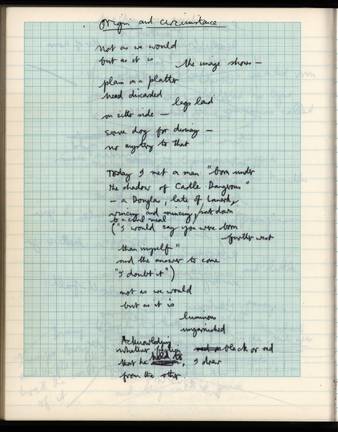 Origin and circumstance
not as we would
but as it is
the image shows —
plain on a platter
head discarded
legs laid
on either side —
some day for dismay —
no mystery to that
Today I met a man "born under
the shadow of Castle Dangerous"
— a Douglas, late of Lanark,
wincing and mincing, sat down
to a cold meal
("I would say you were born
further west
than myself"
and the answer to come
"I doubt it")
not as we would
but as it is
luminous
ungarnished
Acknowledging
whether
black or red
that he, I draw
from the other.